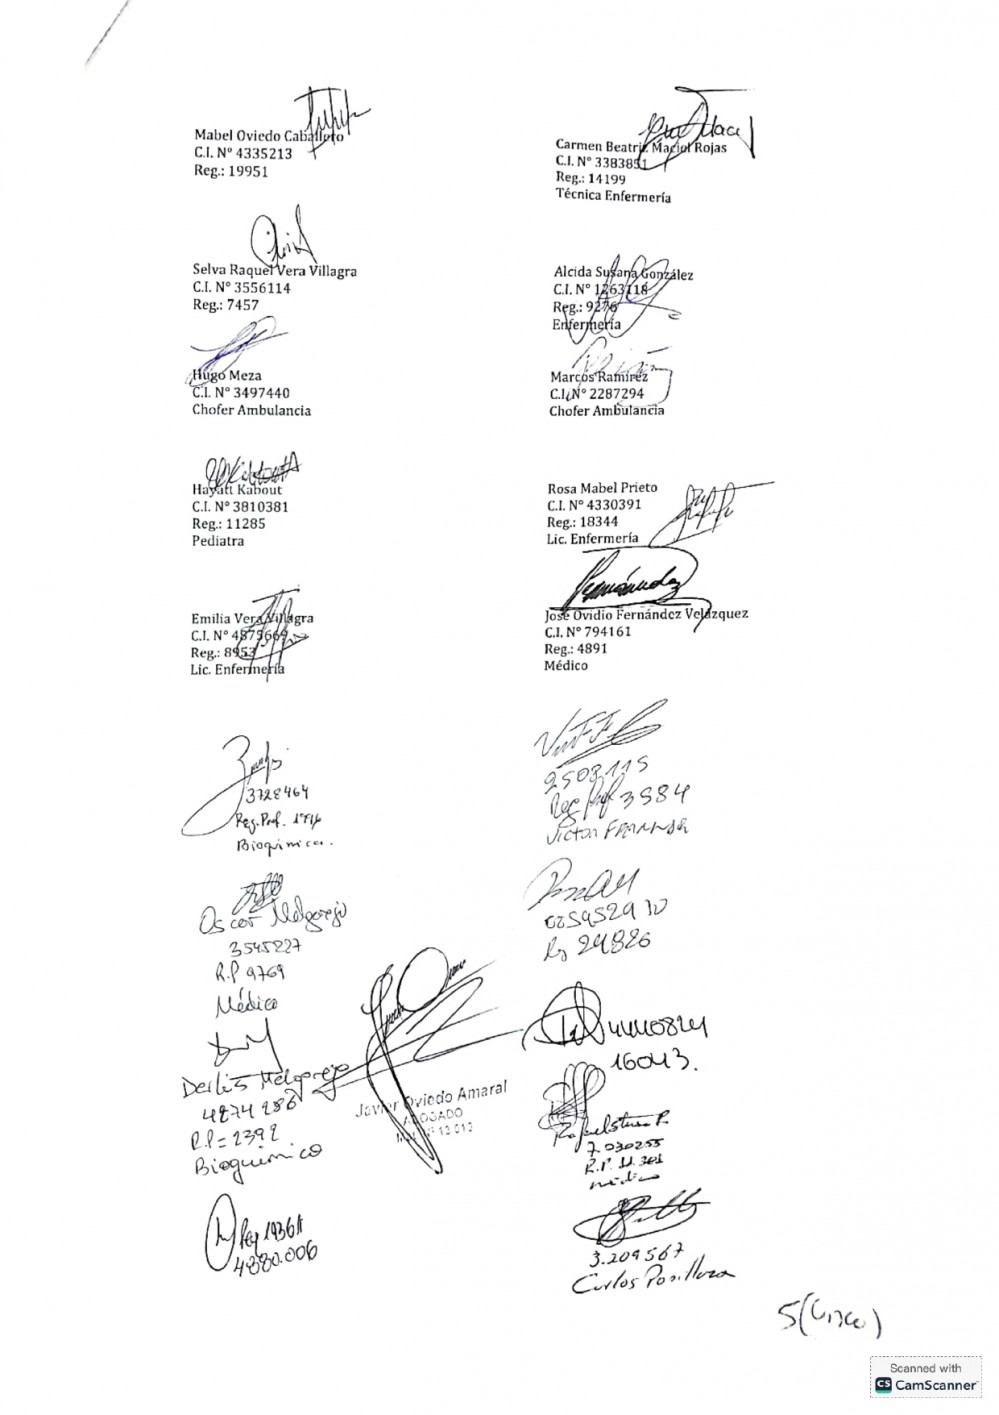 Mabel Oviedo Caballero
C.I. Nº 4335213
Reg.: 19951
Carmen Beatriz Maciel Rojas
C.I. Nº 3383851
Reg.: 14199
Técnica Enfermería
Selva Raquel Vera Villagra
C.I. Nº 3556114
Reg.: 7457
Alcida Susana González
C.I. Nº 1263118
Reg.: 9276
Enfermería
Hugo Meza
C.I. Nº 3497440
Chofer Ambulancia
Marcos Ramírez
C.I. Nº 2287294
Chofer Ambulancia
Hayatt Kabout
C.I. Nº 3810381
Reg.: 11285
Pediatra
Rosa Mabel Prieto
C.I. Nº 4330391
Reg.: 18344
Lic. Enfermería
Emilia Vera Villagra
C.I. Nº 4875669
Reg.: 8953
Lic. Enfermería
Fernández
José Ovidio Fernández Velázquez
C.I. Nº 794161
Reg.: 4891
Médico
3728464
Reg. Prof.
Bioquímica.
2503115
Reg Prof 3984
Victor
Oscar Melgarejo
3545227
R.P 9769
Médico
Rg 24826
Derlis Melgarejo
4874286
R.P = 2392
Bioquímico
Javier Oviedo Amaral
ABOGADO
16043.
7.030255
R.P.
médico
Reg
4880.006
3.209567
Carlos
5 (Cinco)
Scanned with
CS CamScanner